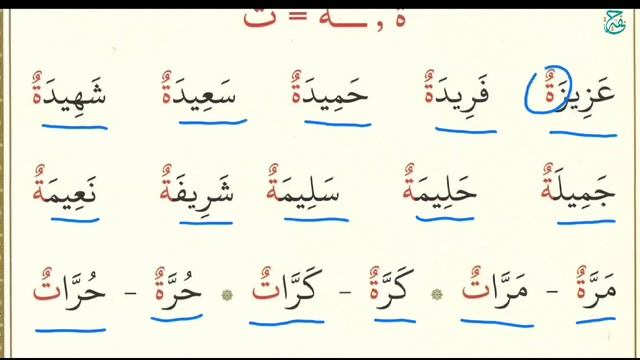 ة , ـة = ت
عَزِيزَةٌ فَرِيدَةٌ حَمِيدَةٌ سَعِيدَةٌ شَهِيدَةٌ
جَمِيلَةٌ حَلِيمَةٌ سَلِيمَةٌ شَرِيفَةٌ نَعِيمَةٌ
مَرَّةٌ - مَرَّاتٌ * كَرَّةٌ - كَرَّاتٌ * حُرَّةٌ - حُرَّاتٌ